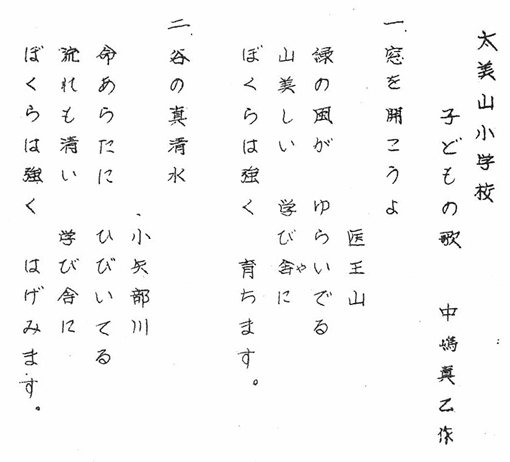 太美山小学校
子どもの歌 中嶋真乙作
一、窓を開こうよ
医王山
緑の風が ゆらいでる
山美しい 学び舎(や)に
ぼくらは強く 育ちます。
二、谷の真清水
小矢部川
命あらたに ひびいてる
流れも清い 学び舎に
ぼくらは強く はげみます。